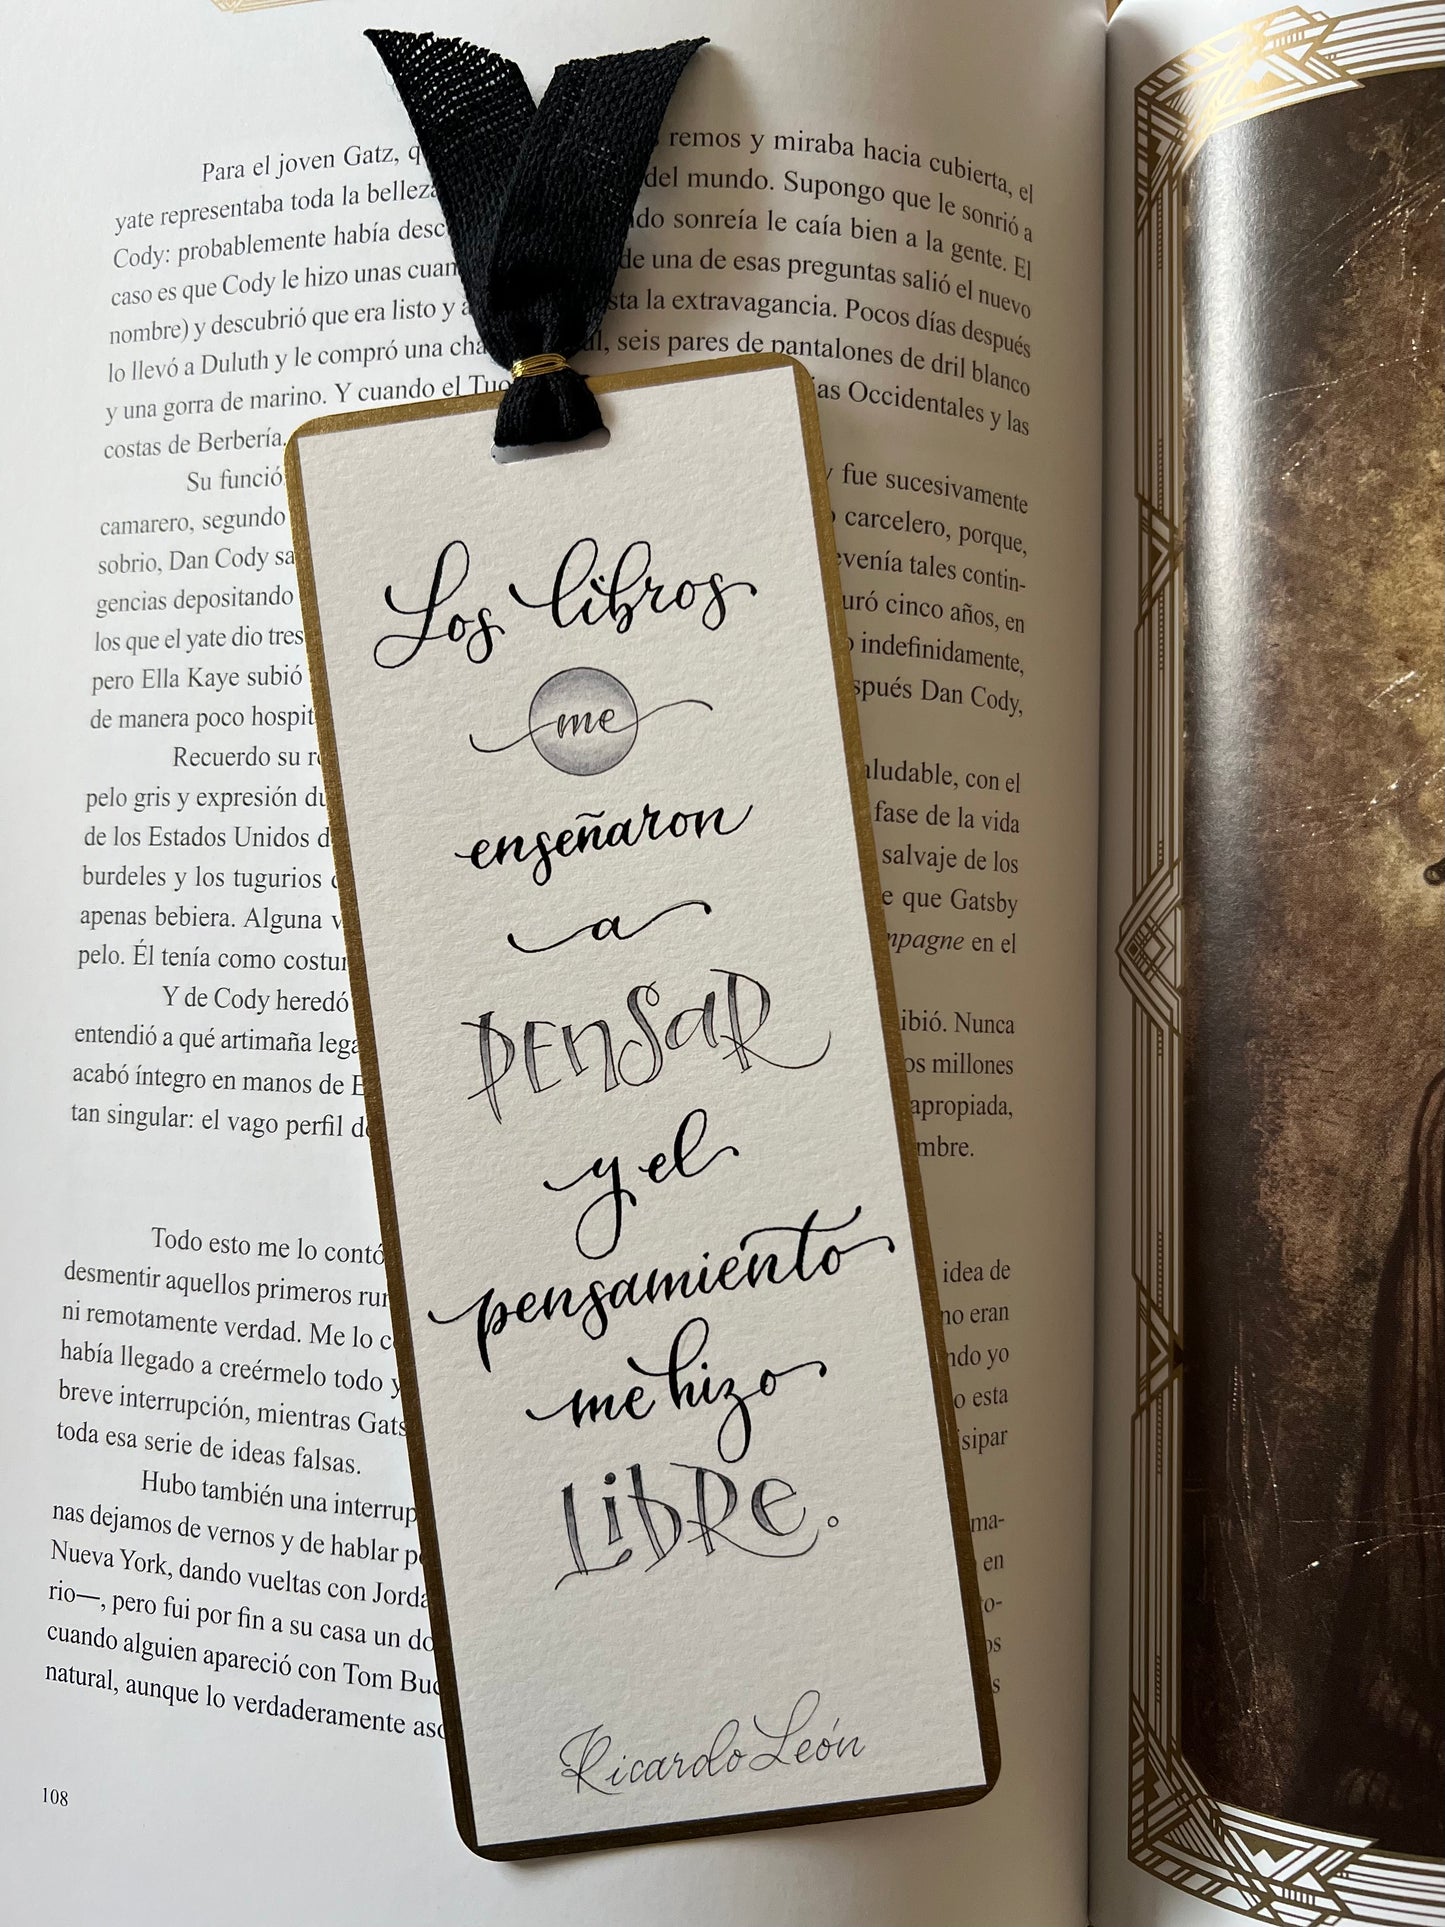 Para el joven Gatz, remos y miraba hacia cubierta, el
yate representaba toda la belleza del mundo. Supongo que le sonrió a
Cody: probablemente había sonreía le caía bien a la gente. El
caso es que Cody le hizo unas de una de esas preguntas salió el nuevo
nombre) y descubrió que era listo y la extravagancia. Pocos días después
lo llevó a Duluth y le compró una seis pares de pantalones de dril blanco
y una gorra de marino. Y cuando el Occidentales y las
costas de Berbería.
Su fue sucesivamente
camarero, segundo carcelero, porque,
sobrio, Dan Cody tales contin-
gencias depositando cinco años, en
los que el yate dio tres indefinidamente,
pero Ella Kaye subió Dan Cody,
de manera poco
Recuerdo su con el
pelo gris y expresión fase de la vida
de los Estados Unidos salvaje de los
burdeles y los tugurios que Gatsby
apenas bebiera. Alguna en el
pelo. Él tenía como
Y de Cody heredó Nunca
entendió a qué artimaña millones
acabó íntegro en manos de apropiada,
tan singular: el vago perfil
Todo esto me lo contó idea de
desmentir aquellos primeros eran
ni remotamente verdad. Me lo yo
había llegado a creérmelo todo y esta
breve interrupción, mientras
toda esa serie de ideas falsas.
Hubo también una
nas dejamos de vernos y de hablar en
Nueva York, dando vueltas con
rio—, pero fui por fin a su casa un
cuando alguien apareció con Tom
natural, aunque lo verdaderamente
108
Los libros
me
enseñaron
a
PENSAR
y el
pensamiento
me hizo
LiBRE.
Ricardo León